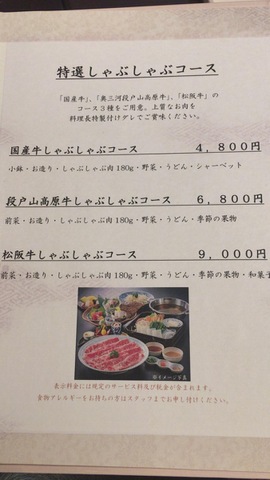 特選しゃぶしゃぶコース
「国産牛」、「奥三河段戸山高原牛」、「松阪牛」の
コース3種をご用意。上質なお肉を
料理長特製付けダレでご賞味ください。
国産牛しゃぶしゃぶコース 4,800円
小鉢・お造り・しゃぶしゃぶ肉180g・野菜・うどん・シャーベット
段戸山高原牛しゃぶしゃぶコース 6,800円
前菜・お造り・しゃぶしゃぶ肉180g・野菜・うどん・季節の果物
松阪牛しゃぶしゃぶコース 9,000円
前菜・お造り・しゃぶしゃぶ肉180g・野菜・うどん・季節の果物・和菓子
※イメージ写真
表示料金には規定のサービス料及び税金が含まれます。
食物アレルギーをお持ちの方はスタッフまでお申し付けください。